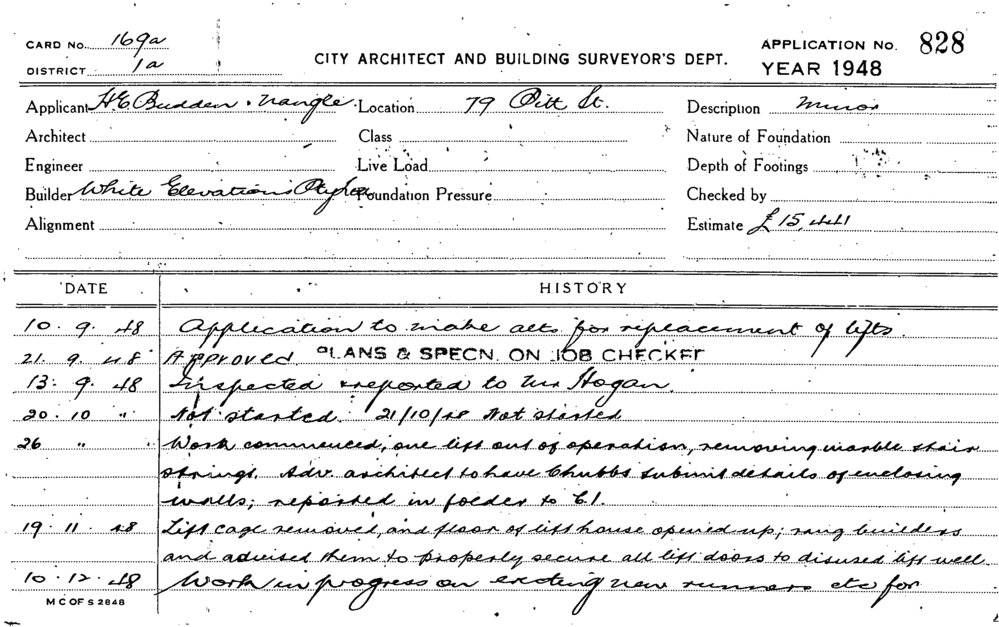 CARD No. 169a
DISTRICT 1a
CITY ARCHITECT AND BUILDING SURVEYOR'S DEPT.
APPLICATION No. 828
YEAR 1948
Applicant H E Budden & Nangle Location 79 Pitt St. Description Minor
Architect Class Nature of Foundation
Engineer Live Load Depth of Footings
Builder White Elevations Pty Ltd Foundation Pressure Checked by
Alignment Estimate £15,441
DATE HISTORY
10. 9. 48 Application to make alts for replacement of lifts.
21. 9. 48 Approved PLANS & SPECN. ON JOB CHECKED
13. 9. 48 Inspected & reported to Mr Hogan.
20. 10 " Not started. 21/10/48 Not started
26 " " Work commenced, one lift out of operation, removing marble stair
strings. Adv. architect to have Chubbs submit details of enclosing
walls; reported in folder to C1.
19. 11. 48 Lift cage removed, and floor of lift house opened up; rang builders
and advised them to properly secure all lift doors to disused lift well
10. 12. 48 Work in progress on erecting new runners etc for
M C OF S 2848